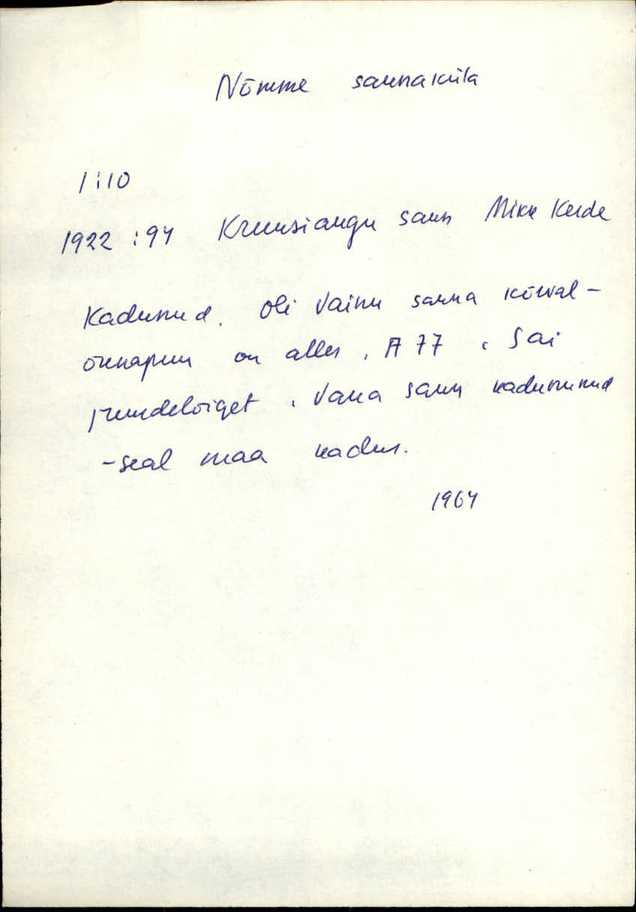 Nõmme saunaküla
1:10
1922 : 94 Kruusiaugu saun Mikk Kerde
Kadunud. Oli Vainu sauna kõrval –
õunapuu on alles, A 77. Sai
juurdelõiget. Vana saun kadunud
– seal maa kadus.
1964